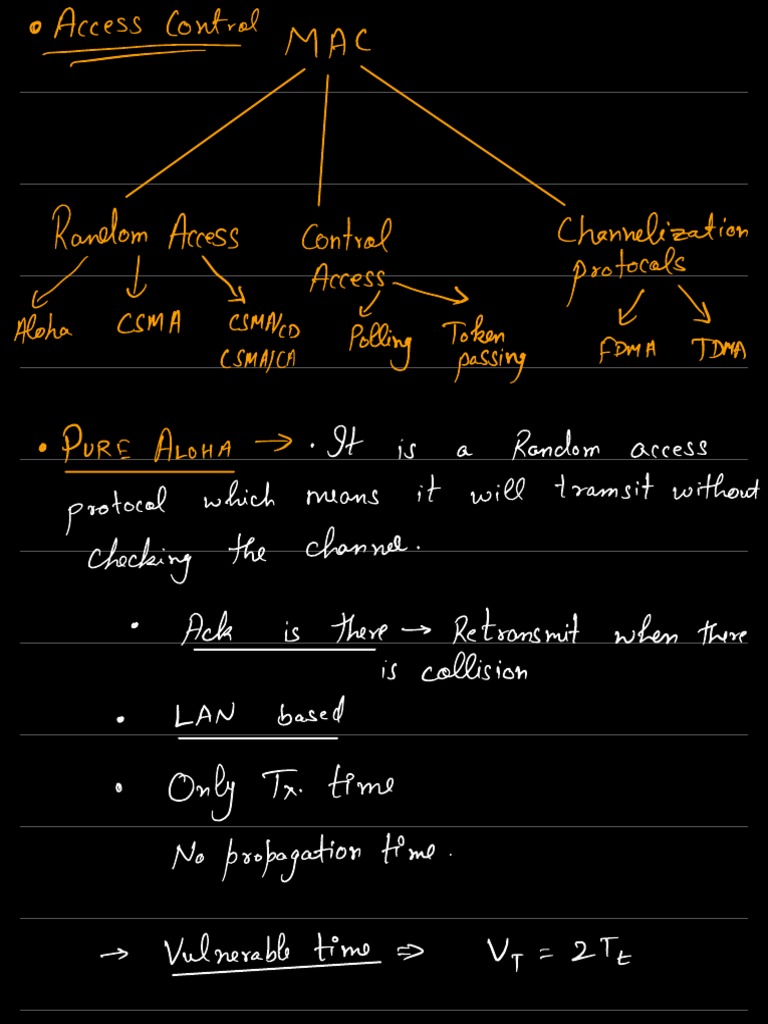 • Access Control
MAC
Random Access Control Channelization
Access protocols
Aloha CSMA CSMA/CD Polling Token FDMA TDMA
CSMA/CA passing
• PURE ALOHA → • It is a Random access
protocol which means it will transit without
checking the channel.
• Ack is there → Retransmit when there
is collision
• LAN based
• Only Tx. time
No propagation time.
→ Vulnerable time ⇒ V_T = 2T_t